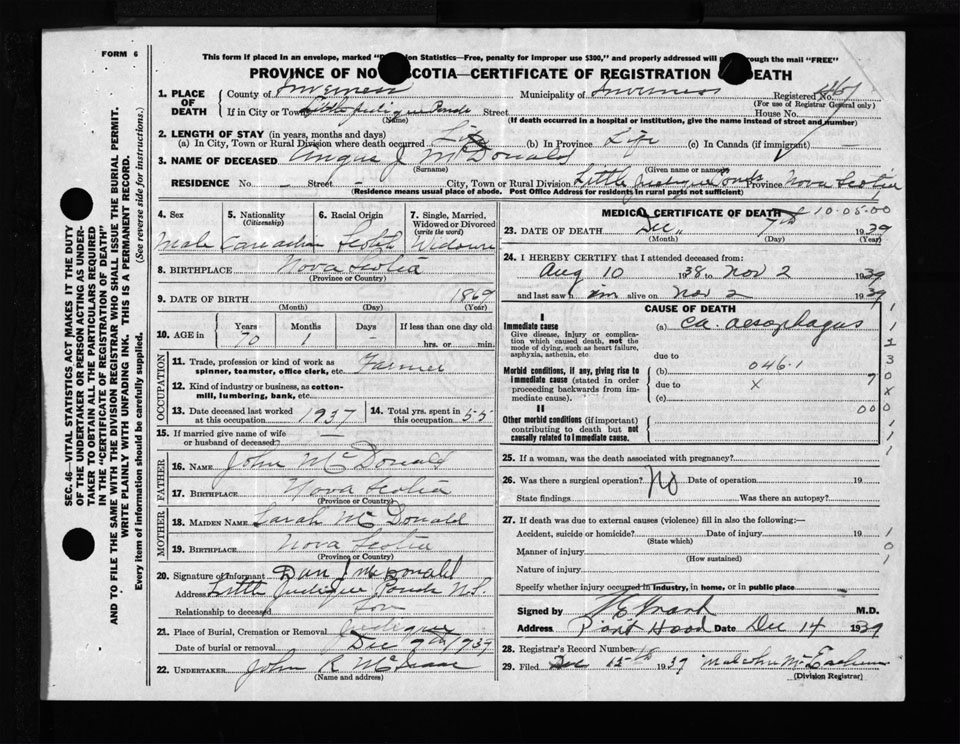 FORM 6
This form if placed in an envelope, marked "D ion Statistics—Free, penalty for improper use $300," and properly addressed will p through the mail "FREE"
PROVINCE OF NO SCOTIA—CERTIFICATE OF REGISTRATION DEATH
1. PLACE OF DEATH
County of Inverness Municipality of Inverness Registered No.
(For use of Registrar General only)
If in City or Town Little Judique Ponds Street House No.
(Name) (If death occurred in a hospital or institution, give the name instead of street and number)
2. LENGTH OF STAY (in years, months and days)
(a) In City, Town or Rural Division where death occurred Life (b) In Province Life (c) In Canada (if immigrant) —
3. NAME OF DECEASED Angus J McDonald
(Surname) (Given name or names)
RESIDENCE No. - Street - - City, Town or Rural Division Little Judique Ponds Province Nova Scotia
(Residence means usual place of abode. Post Office Address for residents in rural parts not sufficient)
4. Sex
Male
5. Nationality
(Citizenship)
Canadian
6. Racial Origin
Scotch
7. Single, Married, Widowed or Divorced
(write the word)
Widower
8. BIRTHPLACE Nova Scotia
(Province or Country)
9. DATE OF BIRTH 1869
(Month) (Day) (Year)
10. AGE in
Years Months Days If less than one day old
70 1 - hrs. or min.
OCCUPATION
11. Trade, profession or kind of work as spinner, teamster, office clerk, etc. Farmer
12. Kind of industry or business, as cotton-mill, lumbering, bank, etc.
13. Date deceased last worked at this occupation 1937
14. Total yrs. spent in this occupation 55
15. If married give name of wife or husband of deceased —
FATHER
16. NAME John McDonald
17. BIRTHPLACE Nova Scotia
(Province or Country)
MOTHER
18. MAIDEN NAME Sarah McDonald
19. BIRTHPLACE Nova Scotia
(Province or Country)
20. Signature of Informant Dan J McDonald
Address Little Judique Ponds N.S.
Relationship to deceased Son
21. Place of Burial, Cremation or Removal Judique
Date of burial or removal Dec 9th 1939
22. UNDERTAKER John R
(Name and address)
MEDICAL CERTIFICATE OF DEATH 10-05-00
23. DATE OF DEATH Dec 7th 1939
(Month) (Day) (Year)
24. I HEREBY CERTIFY that I attended deceased from:
Aug 10 1938 to Nov 2 1939
and last saw him alive on Nov 2 1939
CAUSE OF DEATH
I
Immediate cause (a) ca. aesophagus
Give disease, injury or complication which caused death, not the mode of dying, such as heart failure, asphyxia, asthenia, etc.
due to
Morbid conditions, if any, giving rise to immediate cause (stated in order proceeding backwards from immediate cause).
(b) 046.1
due to X
(c)
II
Other morbid conditions (if important) contributing to death but not causally related to immediate cause.
25. If a woman, was the death associated with pregnancy?
26. Was there a surgical operation? No Date of operation 19
State findings Was there an autopsy?
27. If death was due to external causes (violence) fill in also the following:—
Accident, suicide or homicide? Date of injury 19
(State which)
Manner of injury
(How sustained)
Nature of injury
Specify whether injury occurred in industry, in home, or in public place
Signed by M.D.
Address Port Hood Date Dec 14 1939
28. Registrar's Record Number
29. Filed Dec 15th 1939 Malcolm McEachern
(Division Registrar)
SEC. 46—VITAL STATISTICS ACT MAKES IT THE DUTY
OF THE UNDERTAKER OR PERSON ACTING AS UNDER-
TAKER TO OBTAIN ALL THE PARTICULARS REQUIRED
IN THE "CERTIFICATE OF REGISTRATION OF DEATH"
AND TO FILE THE SAME WITH THE DIVISION REGISTRAR WHO SHALL ISSUE THE BURIAL PERMIT.
WRITE PLAINLY WITH UNFADING INK. THIS IS A PERMANENT RECORD.
Every item of information should be carefully supplied. (See reverse side for instructions.)